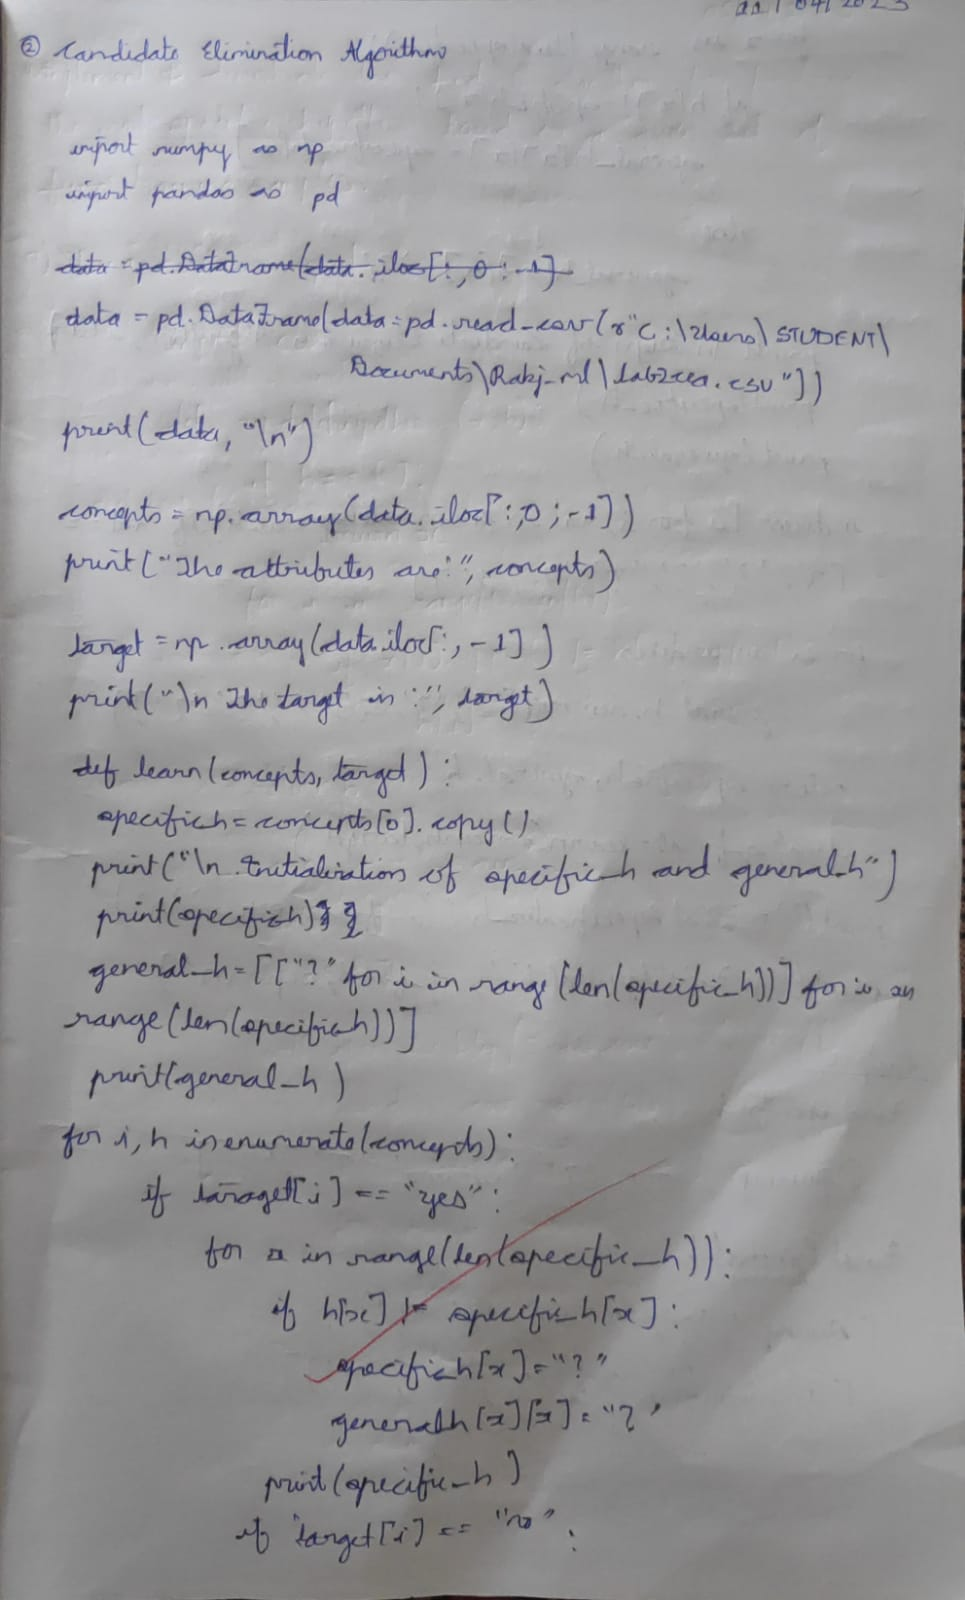 22/04/2023
② Candidate Elimination Algorithm
import numpy as np
import pandas as pd
data = pd.DataFrame(data.iloc[:,0:-1]
data = pd.DataFrame(data=pd.read_csv(r"C:\Users\STUDENT\
Documents\Rakj-ml\Lab2cea.csv"))
print(data, "\n")
concepts = np.array(data.iloc[:,0:-1])
print("The attributes are:", concepts)
target = np.array(data.iloc[:,-1])
print("\n The target is :", target)
def learn(concepts, target):
specific_h = concepts[0].copy()
print("\n Initialization of specific_h and general_h")
print(specific_h)
general_h = [["?" for i in range(len(specific_h))] for i in
range(len(specific_h))]
print(general_h)
for i, h in enumerate(concepts):
if target[i] == "yes":
for x in range(len(specific_h)):
if h[x] != specific_h[x]:
specific_h[x] = "?"
general_h[x][x] = "?"
print(specific_h)
if target[i] == "no":